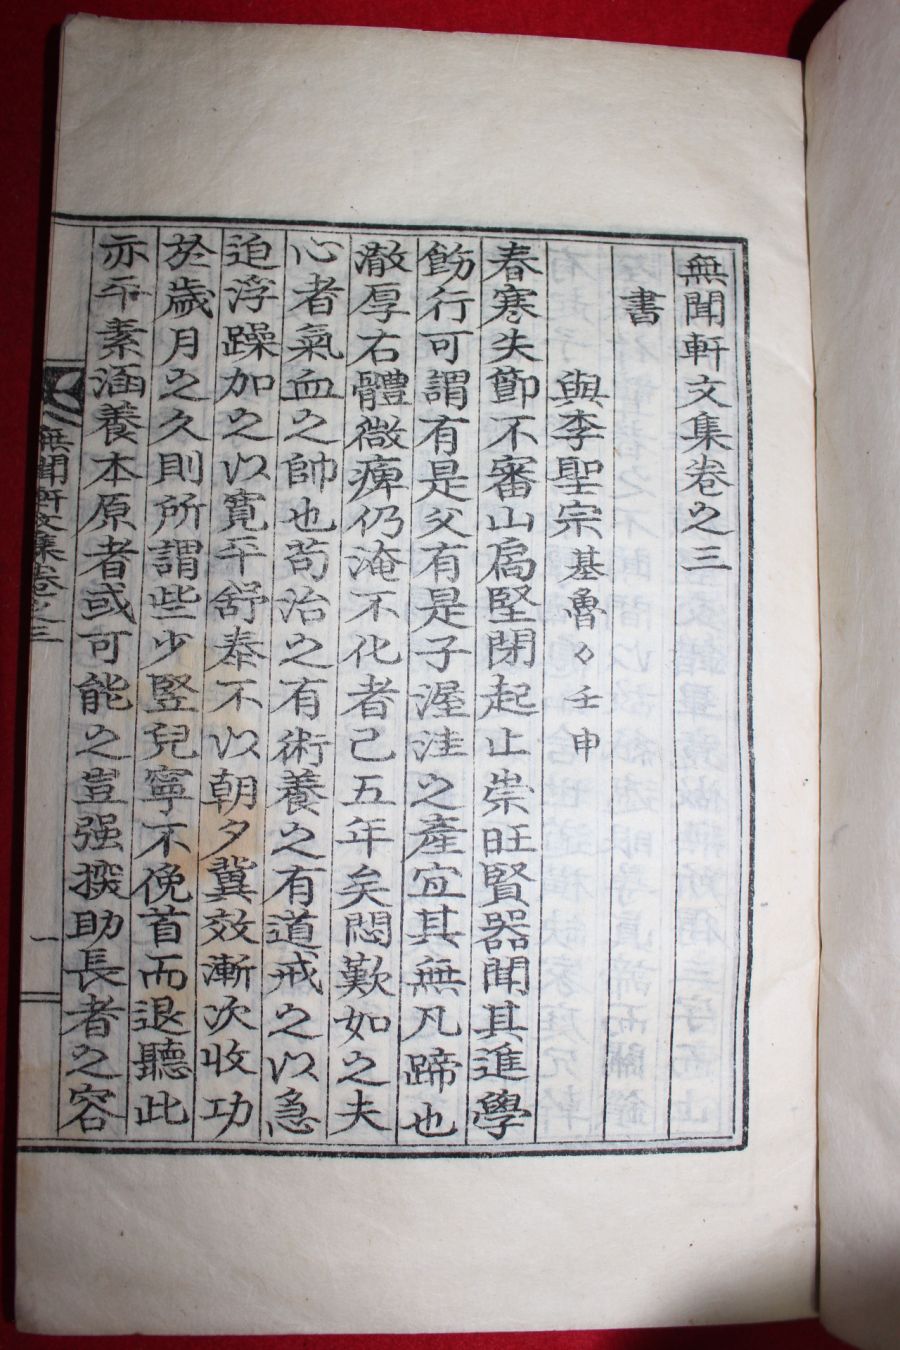 無聞軒文集卷之三
書
與李聖宗基魯〻壬申
春寒失節不審山扃堅閉起止崇旺賢器聞其進學
飭行可謂有是父有是子渥洼之產宜其無凡蹄也
澈厚右體微痺仍淹不化者已五年矣悶歎如之夫
心者氣血之帥也苟治之有術養之有道戒之以急
迫浮躁加之以寬平舒泰不以朝夕冀效漸次收功
於歲月之久則所謂些少豎兒寧不俛首而退聽此
亦平素涵養本原者或可能之豈强揠助長者之容
無聞軒文集卷之三
一